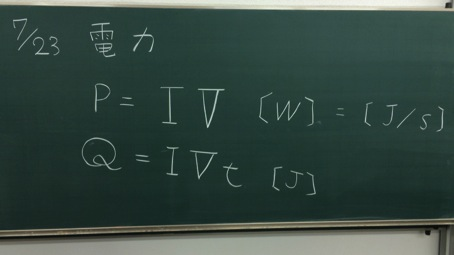 7/23 電力
P = IV [W] = [J/s]
Q = IVt [J]